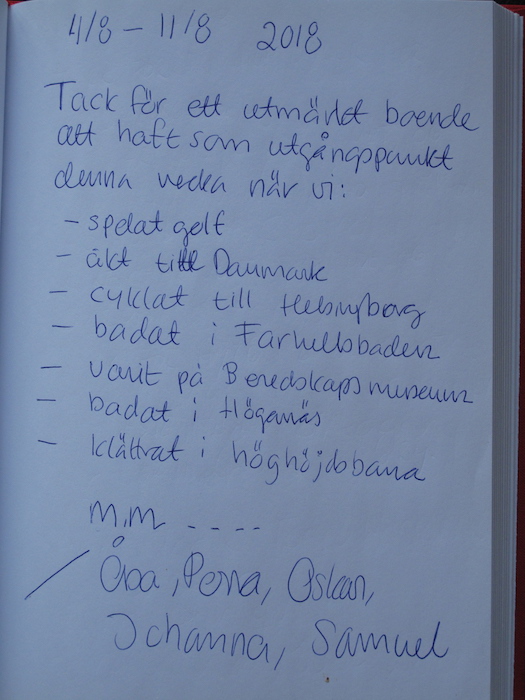 4/8 – 11/8 2018
Tack för ett utmärkt boende
att haft som utgångspunkt
denna vecka när vi:
- spelat golf
- åkt till Danmark
- cyklat till Helsingborg
- badat i Farhultsbaden
- varit på Beredskapsmuseum
- badat i Höganäs
- klättrat i höghöjdsbana
m.m - - - -
/ Åsa, Perra, Oskar,
Johanna, Samuel